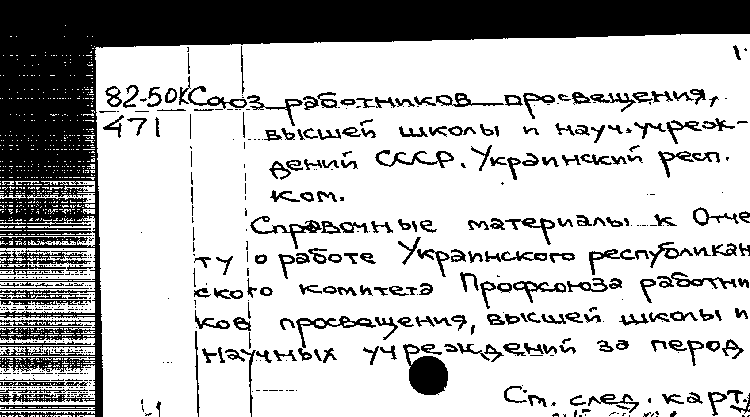 1.
82-50К Союз работников просвещения,
471 высшей школы и науч.учреж-
дений СССР. Украинский респ.
ком.
Справочные материалы к Отче
ту о работе Украинского республикан
ского комитета Профсоюза работни
ков просвещения, высшей школы и
научных учреждений за перод
См. след. карт.